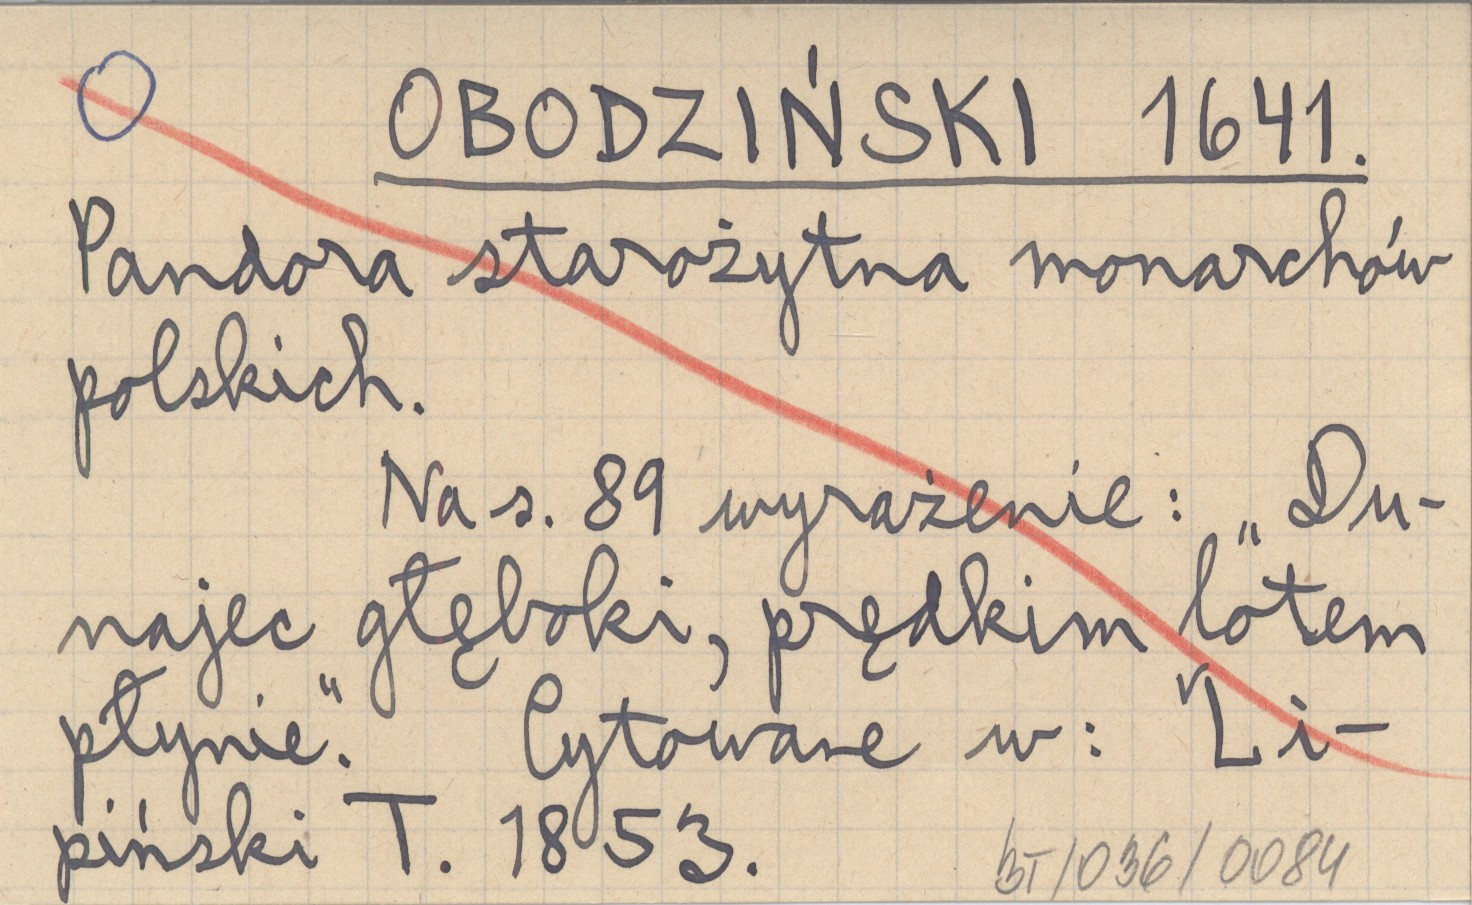 OBODZIŃSKI 1641.
Pandora starożytna monarchów
polskich.
Na s. 89 wyrażenie: „Du-
najec głęboki, prędkim lotem
płynie". Cytowane w: Li-
piński T. 1853.
BT/036/0084